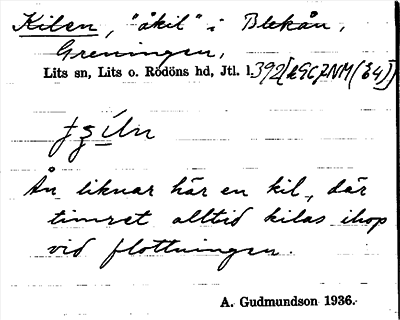 Kilen, "åkil" i Blekån,
Greningen,
Lits sn, Lits o. Rödöns hd, Jtl. l.
Ån liknar här en kil, där
timret alltid kilas ihop
vid flottningen.
A. Gudmundson 1936.